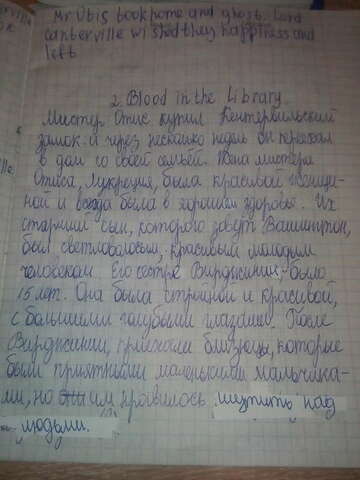 Mr Otis book home and ghost. Lord
canterville wished they happiness and
left
2. Blood in the Library.
Мистер Отис купил Кентервильский
замок. и через несколько недель он переехал
в дом со своей семьёй. Жена мистера
Отиса, Лукреция, была красивой женщи-
ной и всегда была в хорошем здоровье. Их
старший сын, которого зовут Вашингтон,
был светловолосый, красивый молодым
человеком. Его сестре Вирджинии, было
15 лет. Она была стройной и красивой,
с большими голубыми глазами. После
Вирджинии, приехали близнецы, которые
были приятными маленькими мальчика-
ми, но им нравилось шутить над
людьми.